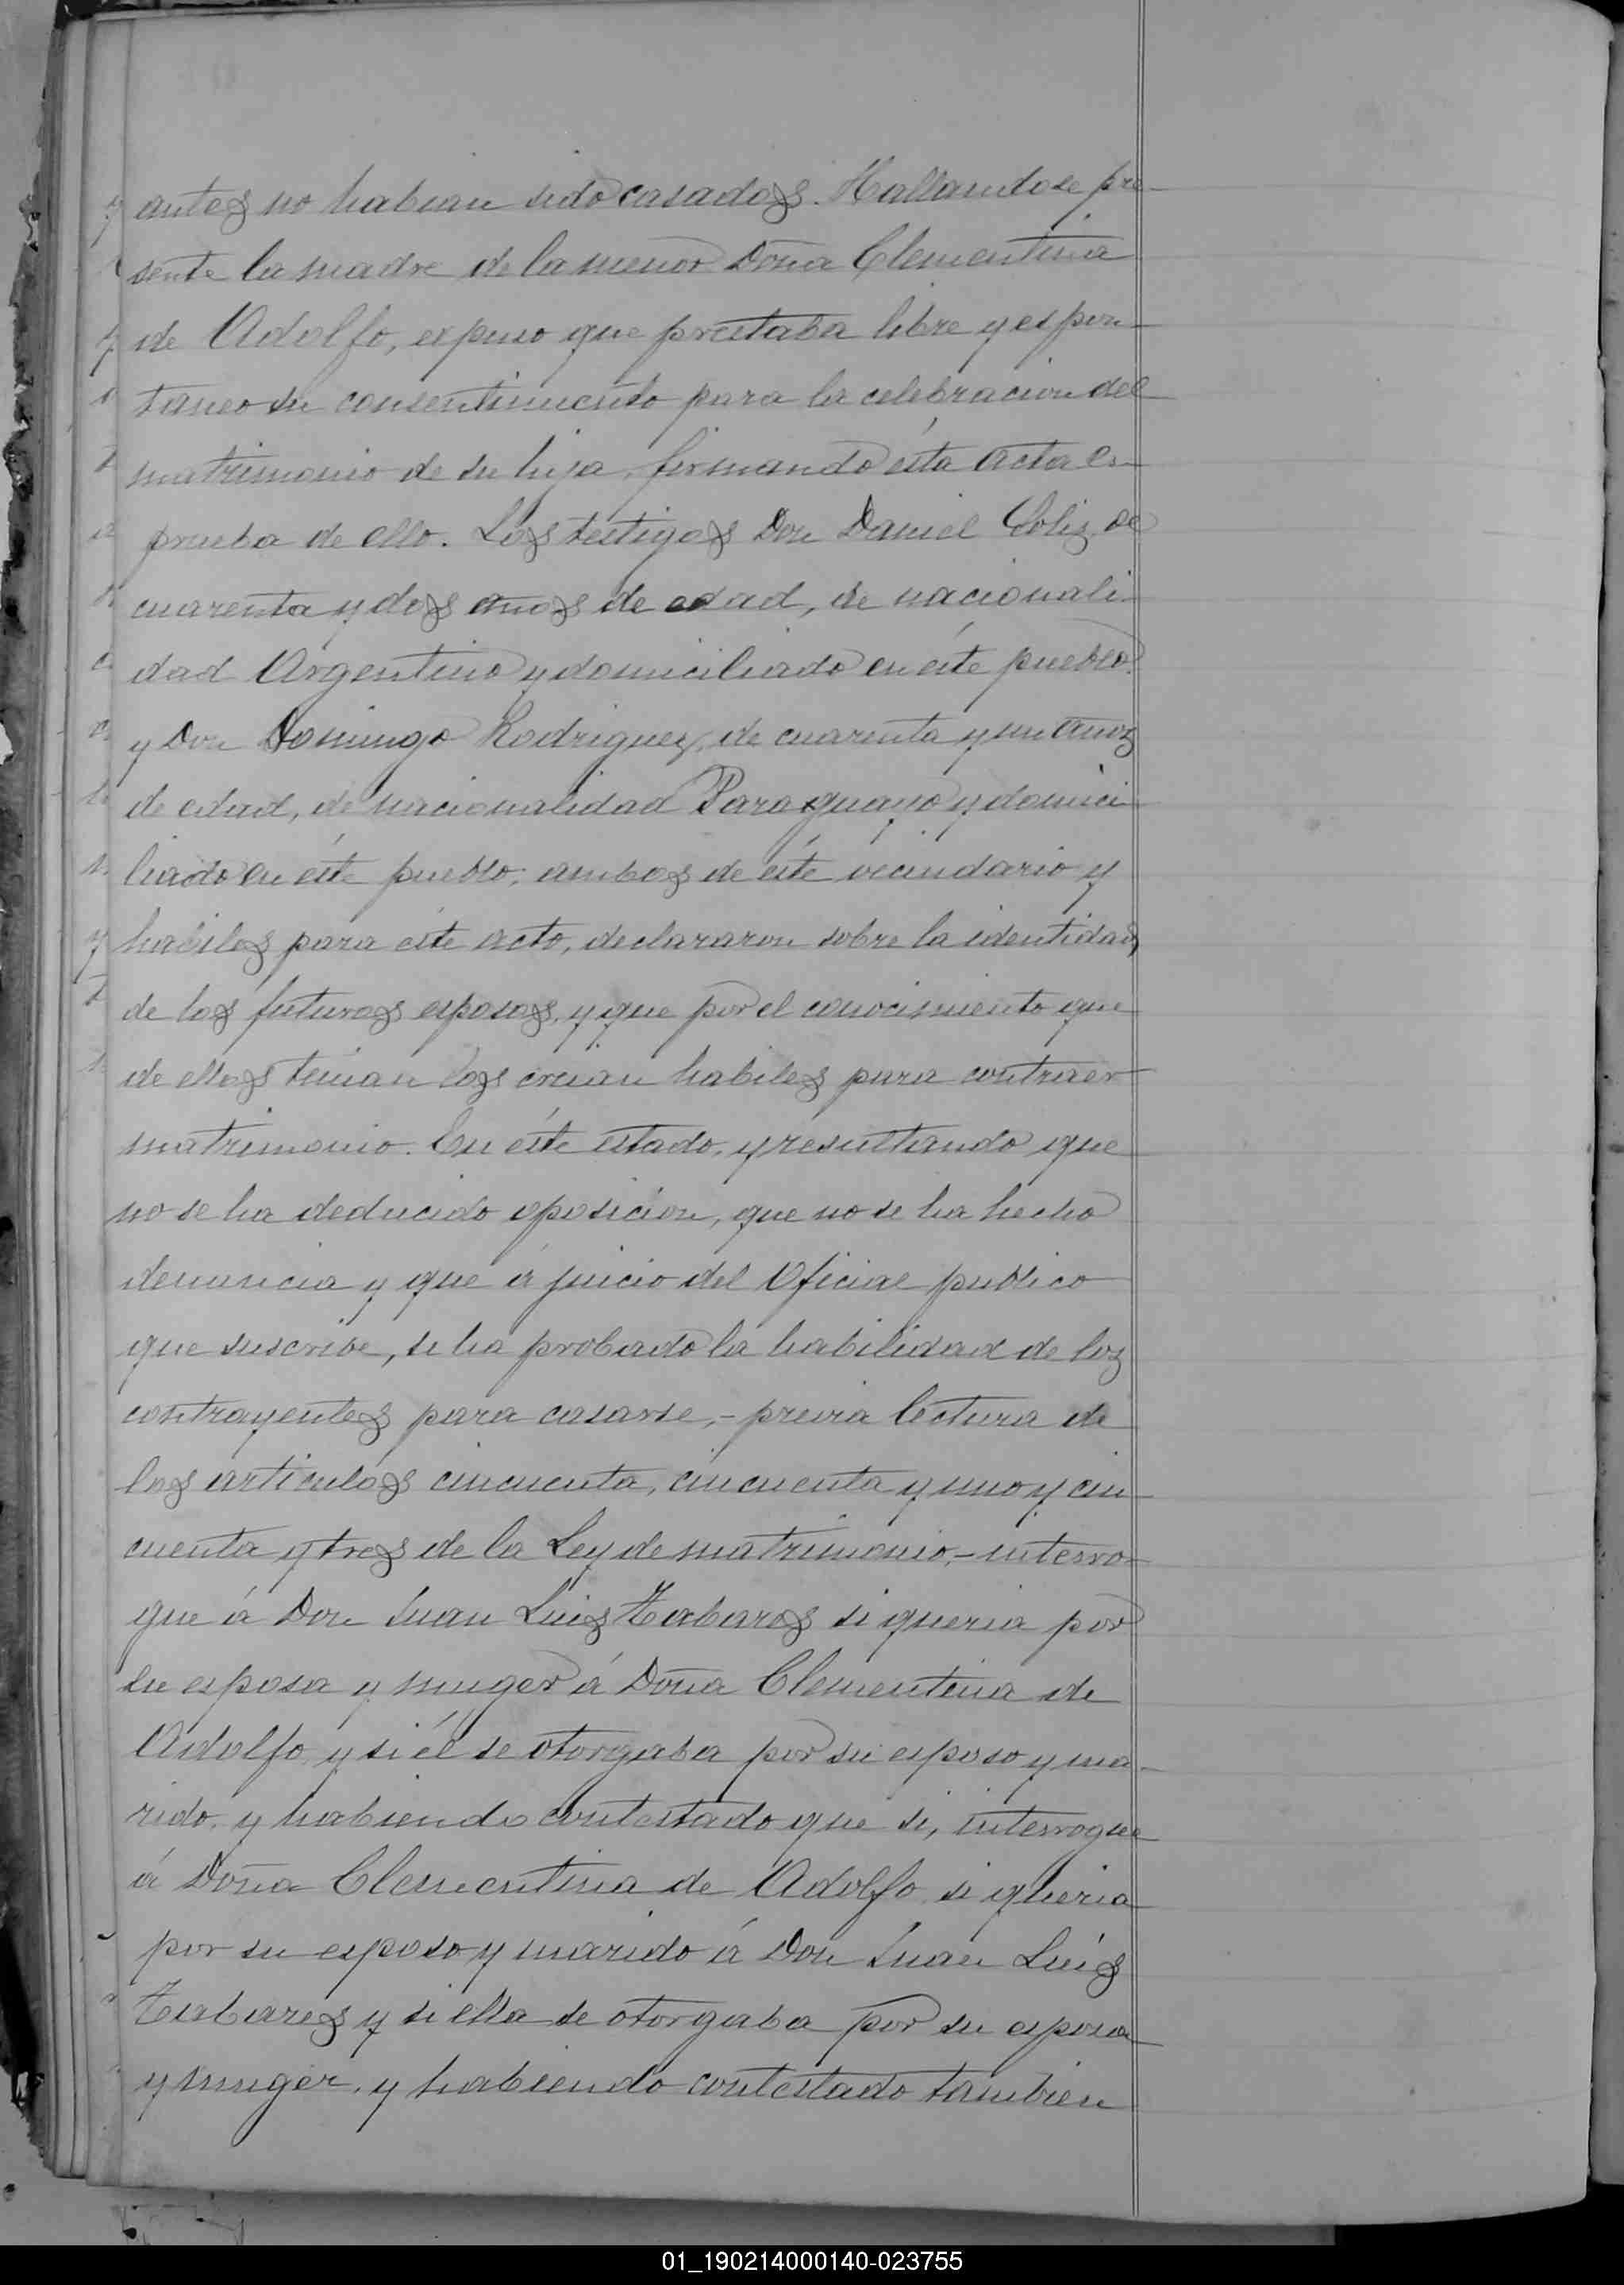 antes no habian sido casados. Hallandose pre-
sente la madre de la menor Doña Clementina
de Adolfo, expuso que prestaba libre y espon-
taneo su consentimiento para la celebracion del
matrimonio de su hija, firmando ésta acta en
prueba de ello. Los testigos Don Daniel Soliz, de
cuarenta y dos años de edad, de nacionali-
dad Argentino y domiciliado en éste pueblo
y Don Domingo Rodriguez, de cuarenta y un años
de edad, de nacionalidad Paraguayo y domici
liado en éste pueblo, ambos de éste vecindario y
habiles para éste acto, declararon sobre la identidad
de los futuros esposos, y que por el conocimiento que
de ellos tenian los creian habiles para contraer
matrimonio. En éste estado, y resultando que
no se ha deducido oposicion, que no se ha hecho
denuncia y que á juicio del Oficial publico
que suscribe, se ha probado la habilidad de los
contrayentes para casarse,- previa lectura de
los articulos cincuenta, cincuenta y uno y cin-
cuenta y tres de la Ley de matrimonio,- interro-
que á Don Juan Luis Tabares si queria por
su esposa y muger á Doña Clementina de
Adolfo y si él se otorgaba por su esposo y ma-
rido, y habiendo contestado que si, interroque
á Doña Clementina de Adolfo si queria
por su esposo y marido á Don Juan Luis
Tabares y si ella se otorgaba por su esposa
y muger, y habiendo contestado tambien
01_190214000140-023755